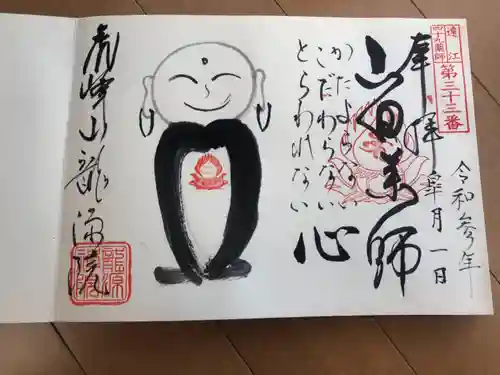 遠江
四十九薬師
第三十三番
奉拝
令和参年
皐月一日
山田薬師
かたよらない
こだわらない
とらわれない
心
青峰山龍源院
龍源